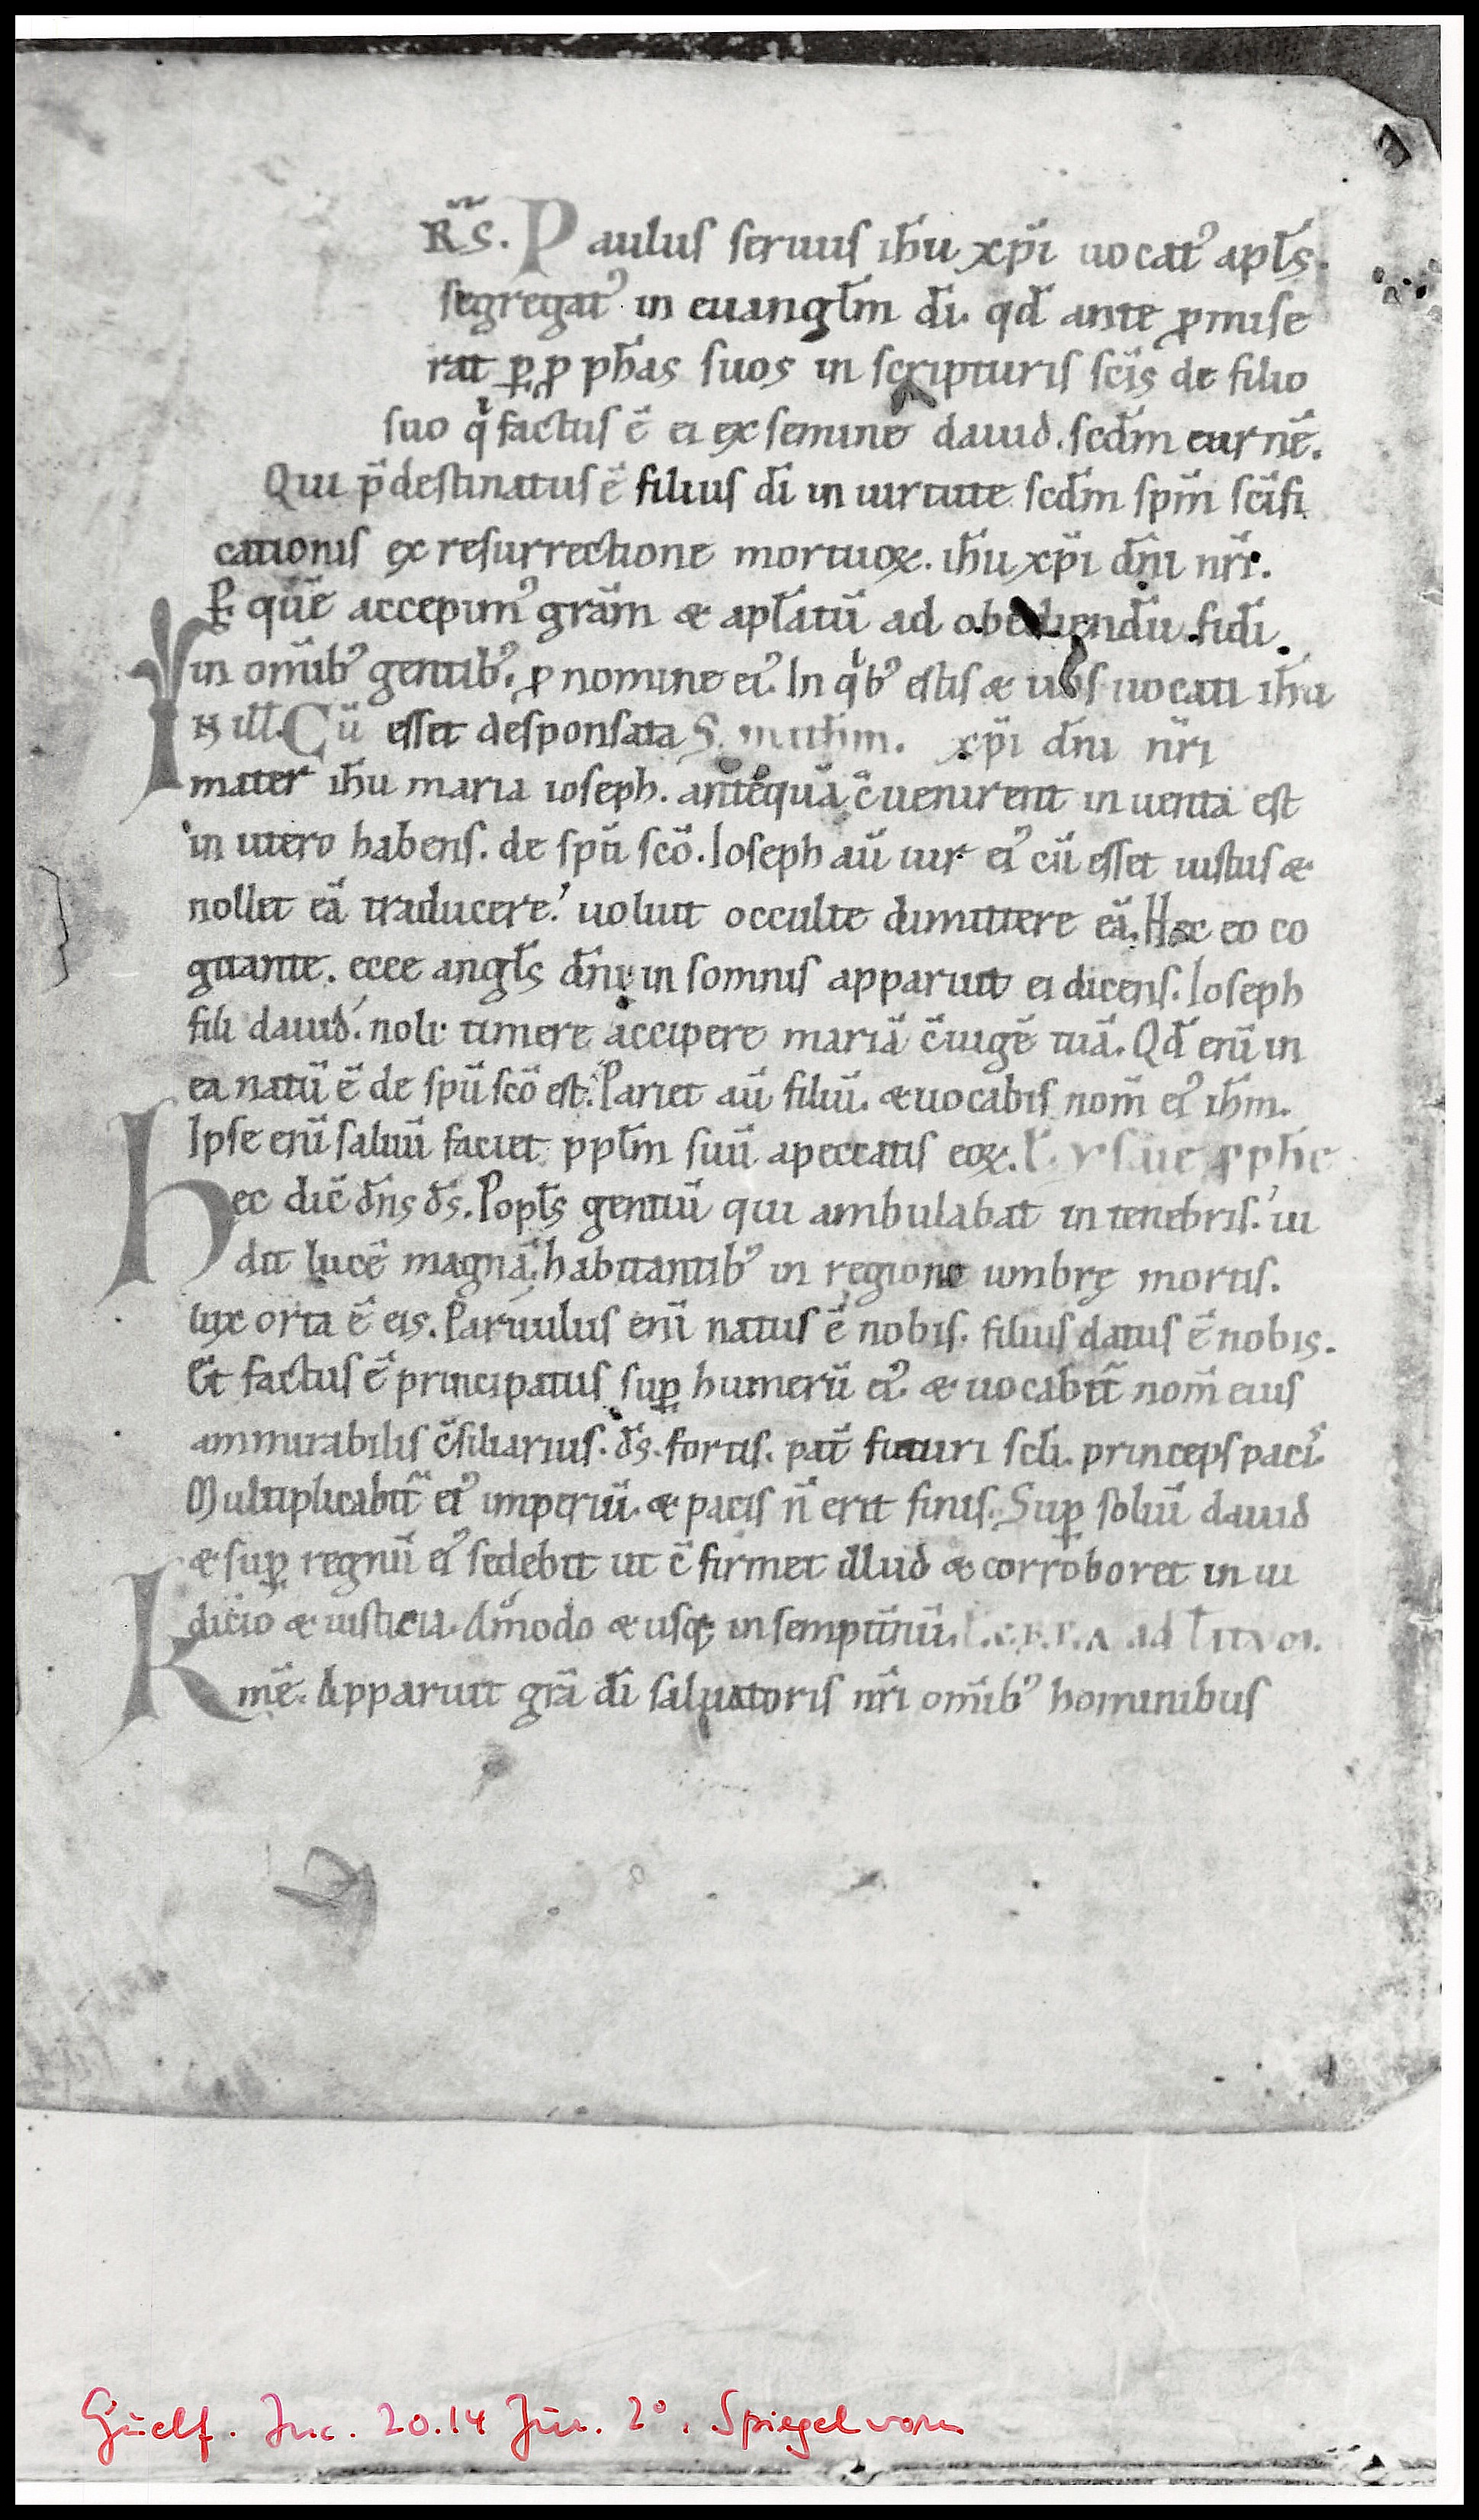 R̄S̄. Paulus seruus ih̄u xp̄i uocat᾿ apl̄s.
segregat᾿ in euangl̄m dī. qd̄ ante ꝓmise
rat ꝑ ꝓph̄as suos in scripturis scīs de filio
suo qͥ factus ē ei ex semine dauid. scdm̄ carnē.
Qui p̄destinatus ē filius dī in uirtute scdm̄ spm̄ scīfi
cationis ex resurrectione mortuoꝝ. ih̄u xp̄i dn̄i nr̄i.
Ꝑ quē accepim᾿ grām & apl̄atū ad obediendū fidī.
in om̄ib᾿ gentib᾿. ꝓ nomine ei᾿. In qͥb᾿ estis & uos uocati ih̄u
IN ill̄. Cū esset desponsata S. math̄m. xp̄i dn̄i nr̄i
mater ih̄u maria ioseph. antequā c̄uenirent inuenta est
in utero habens. de spū scō. Ioseph aū uir ei᾿ cū esset iustus &
nollet eā traducere᾿. uoluit occulte dimittere eā. Hec eo co
gitante. ecce angl̄s dn̄i in somnis apparuit ei dicens. Ioseph
fili dauid᾿. noli timere accipere mariā c̄iugē tuā. Qd̄ enī in
ea natū ē de spū scō est. Pariet aū filiū. & uocabis nom̄ ei᾿ ih̄m.
Ipse enī saluū faciet ppl̄m suū apeccatis eoꝝ. L̄. ysaie ꝓph̄e
hec dic̄ dn̄s ds̄. Popl̄s gentiū qui ambulabat in tenebris᾿. ui
dit lucē magnā. habitantib᾿ in regione umbrę mortis.
lux orta ē eis. Paruulus enī natus ē nobis. filius datus ē nobis.
Et factus ē principatus suꝑ humerū ei᾿. & uocabit̄ nom̄ eius
ammirabilis c̄siliarius. ds̄. fortis. pat̄ futuri scl̄i. princeps paci᾿.
Multiplicabit̄ ei᾿ imperiū. & pacis n̄ erit finis. Suꝑ soliū dauid
& suꝑ regnū ei᾿ sedebit ut c̄firmet illud & corroboret in iu
dicio & iusticia. Am̄odo & usqꝫ in sempit̄nū. ad
Km̄e. Apparuit grā dī saluatoris nr̄i om̄ib᾿ hominibus
Guelf. Inc. 20.14 Jur. 2°. Spiegel vorn